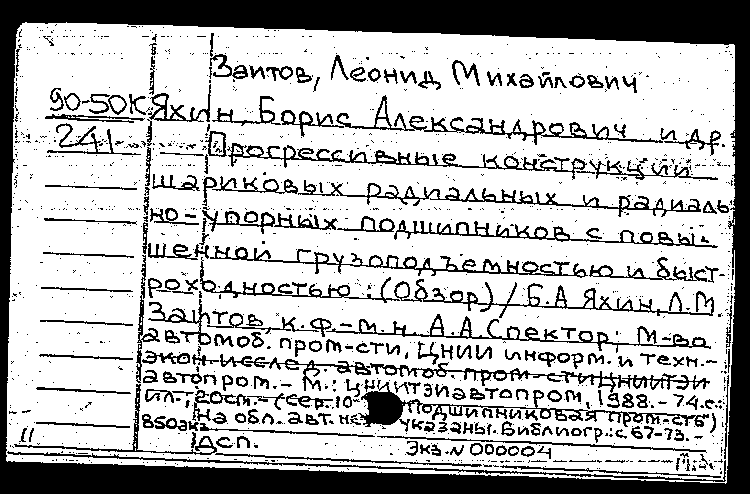 Заитов, Леонид Михайлович
90-50К Яхин, Борис Александрович и др.
241 Прогрессивные конструкции
шариковых радиальных и радиаль
но-упорных подшипников с повы-
шенной грузоподъемностью и быст-
роходностью: (Обзор) / Б.А Яхин, Л.М.
Заитов, к.ф.-м.н. А.А.Спектор; М-во
автомоб. пром-сти, ЦНИИ информ. и техн.-
экон. исслед. автомоб. пром-сти ЦНИИТЭИ
автопром. - М.: ЦНИИТЭИавтопром, 1988. - 74 с.:
ил.; 20см. - (Сер. 10 Подшипниковая пром-сть")
850экз На обл. авт. не указаны. Библиогр.: с. 67-73. -
11 ДСП. Экз. N 000004